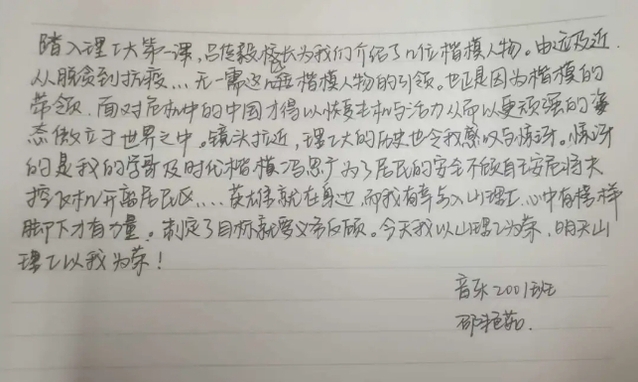 踏入理工大第一课，吕传毅校长为我们介绍了几位楷模人物。由远及近，
从脱贫到抗疫…无一需这些楷模人物的引领。也正是因为楷模的
带领，面对危机中的中国才得以恢复生机与活力从而以更顽强的姿
态傲立于世界之中。镜头拉近，理工大的历史也令我感叹与惊讶。惊讶
的是我的学哥及时代楷模冯思广为了居民的安全不顾自己安危将失
控飞机开离居民区….英雄就在身边，而我有幸与入山理工，心中有榜样
脚下才有力量。制定了目标就要义务反顾。今天我以山理工为荣，明天山
理工以我为荣！
音乐2001班
邵艳茹.